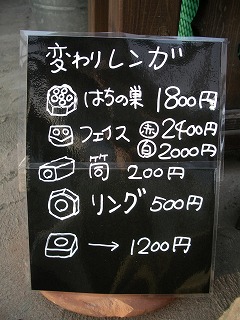 変わりレンガ
はちの巣 1800円
フェイス 赤 2400円
白 2000円
筒 200円
リング 500円
→ 1200円